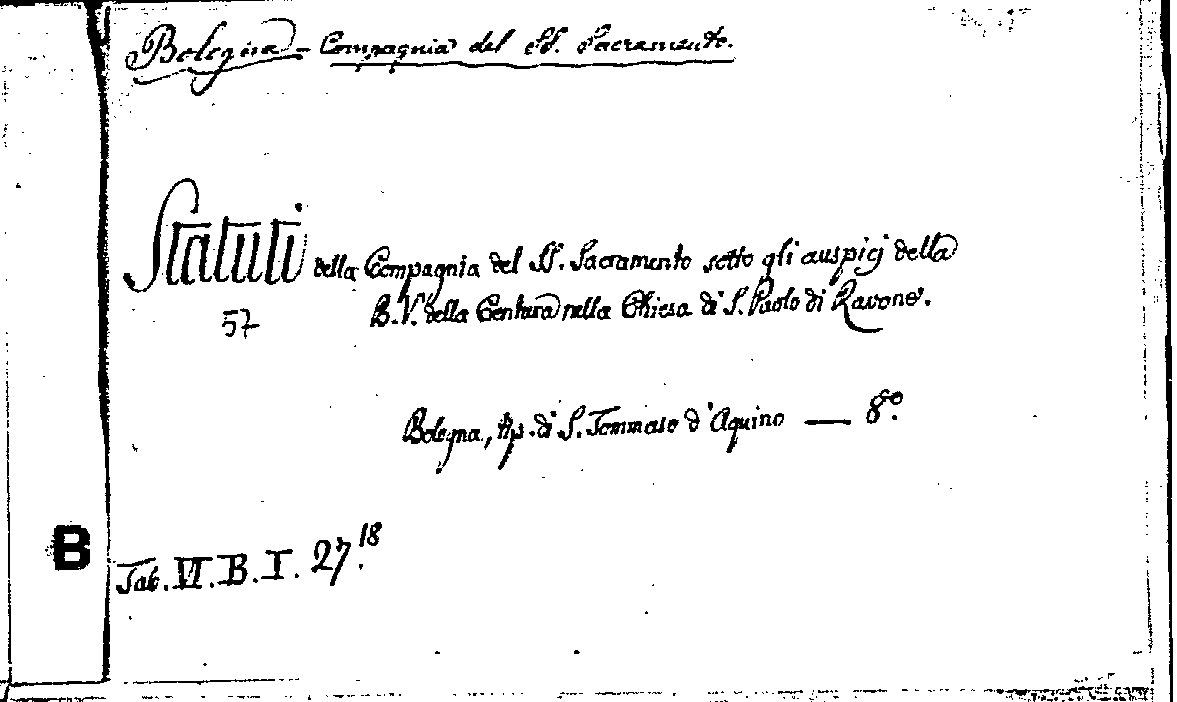 Bologna - Compagnia del SS. Sacramento.
Statuti della Compagnia del SS. Sacramento sotto gli auspicj della
57 B. V. della Centura nella Chiesa di S. Paolo di Ravone.
Bologna, tip. di S. Tommaso d'Aquino — 8.º
B
Tab. VI. B. I. 27.18